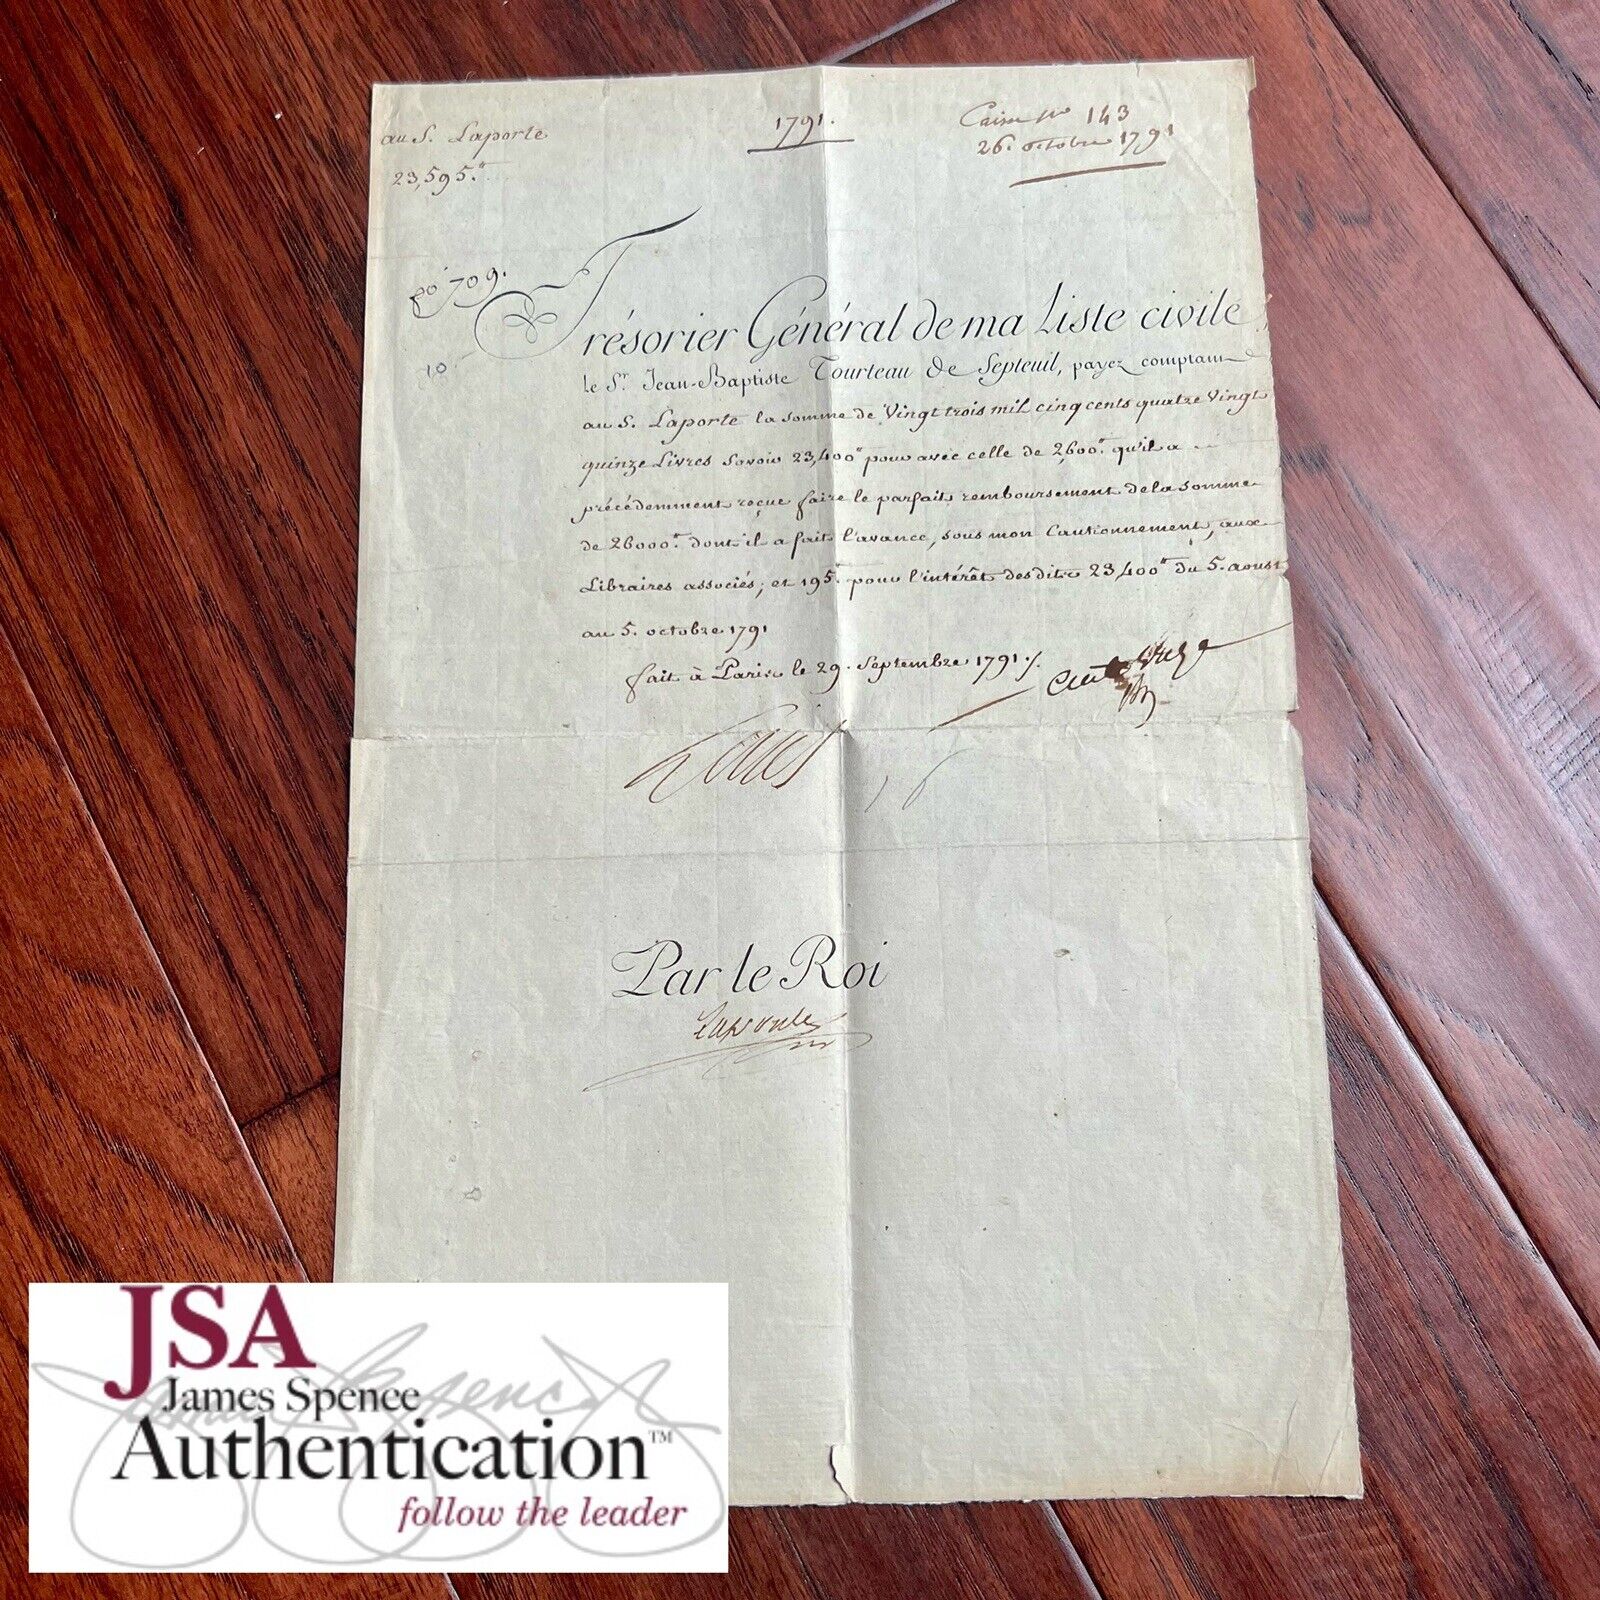 au S. Laporte
23,595.tt
1791.
Caisse no 143
26. octobre 1791
709.
10.
Trésorier Général de ma Liste civile
le Sr. Jean-Baptiste Tourteau de Septeuil, payez comptant
au S. Laporte la somme de Vingt trois mil cinq cents quatre Vingt
quinze Livres Savoir 23,400tt pour avec celle de 2,600tt. qu'il a
précédemment reçue faire le parfait remboursement de la Somme
de 26000tt. dont il a fait l'avance, sous mon Cautionnement, aux
Libraires associés; et 195. pour l'intérêt desdits 23,400tt du 5. aoust
au 5. octobre 1791
fait à Paris le 29. Septembre 1791./.
Louis
16
Par le Roi
Laporte
JSA
James Spence
Authentication™
follow the leader